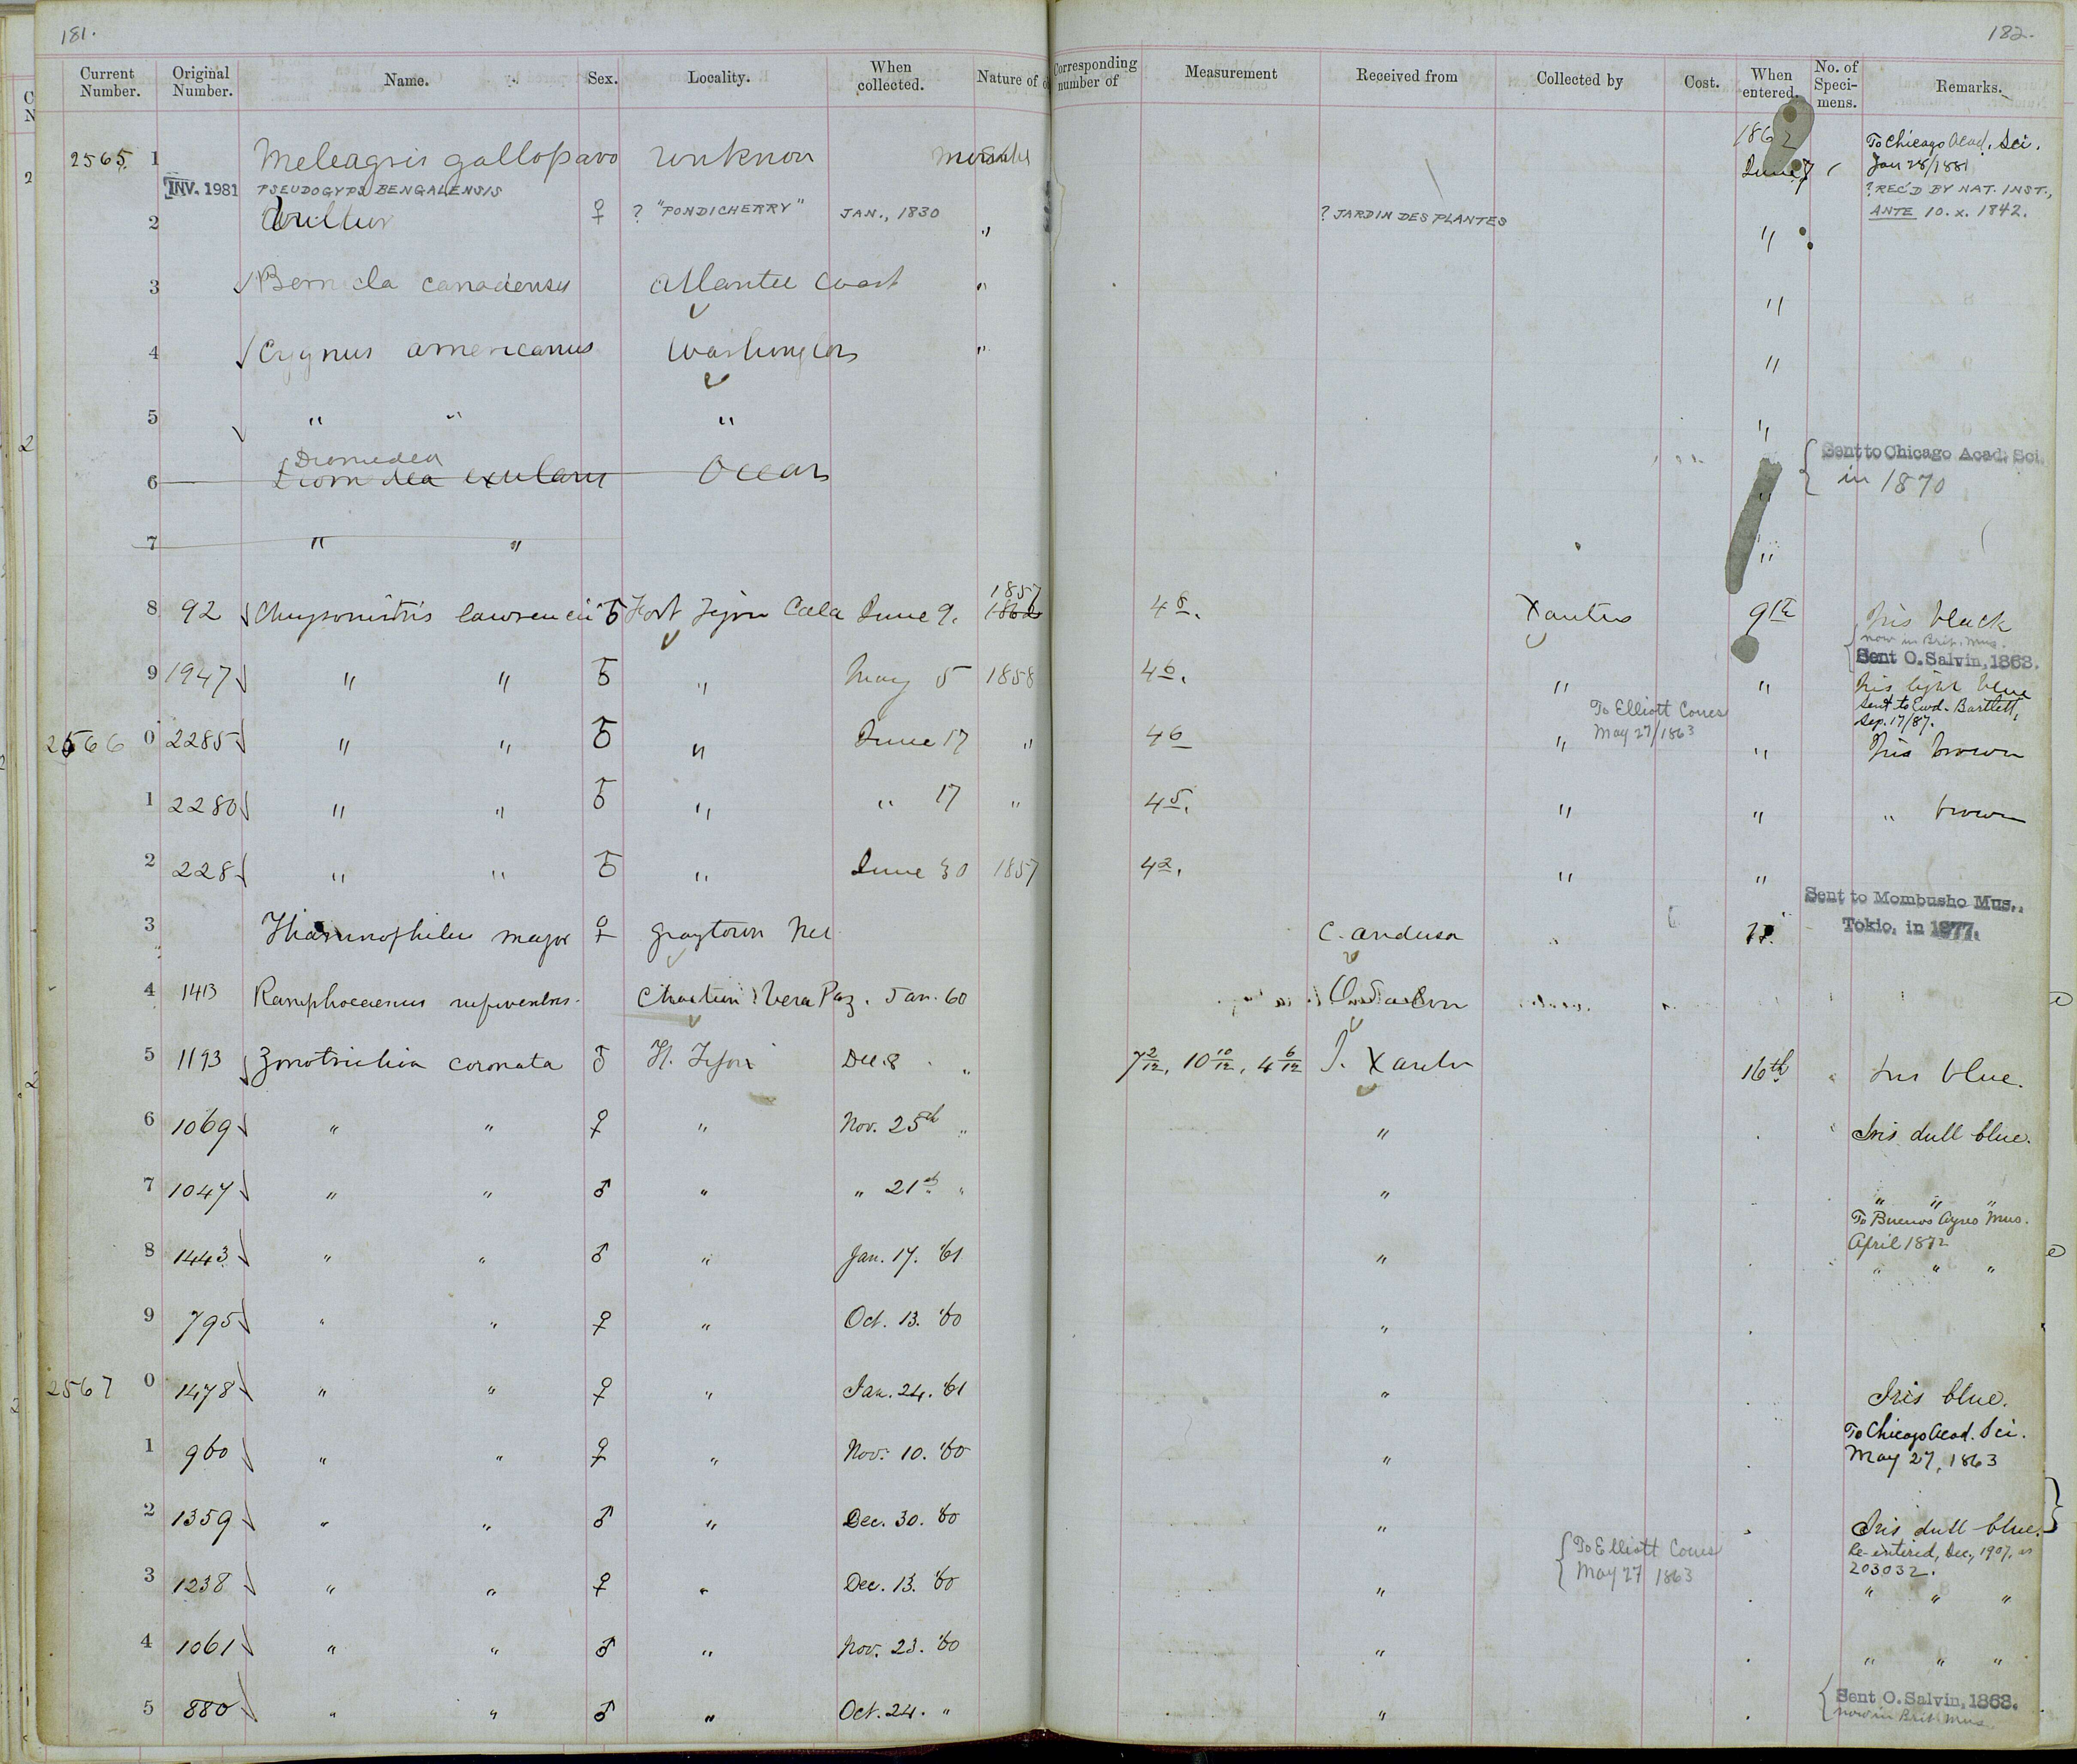 181.
182.
Current Number. Original Number. Name. Sex. Locality. When collected. Nature of Corresponding number of Measurement Received from Collected by Cost. When entered. No. of Speci-mens. Remarks.
2565 1 Meleagris gallopavo unknown mounted 1862 June 7 To Chicago Acad. Sci.
Jan 28/1881
INV. 1981 PSEUDOGYPS BENGALENSIS ? REC'D BY NAT. INST.,
2 Vultur ♀ ? "PONDICHERRY" JAN., 1830 " ? JARDIN DES PLANTES " ANTE 10. X. 1842.
3 Bernicla canadensis Atlantic Coast " "
4 Cygnus americanus Washington " "
5 " " " "
Diomedea Sent to Chicago Acad. Sci.
6 Diomedea exulans Ocean " in 1870
7 " " "
1857
8 92 Chrysomitris lawrencii ♂ Fort Tejon Cala June 9. 1862 4 8. Xantus 9th Iris black
now in Brit. Mus.
Sent O. Salvin, 1868.
9 1947 " " ♂ " May 5 1858 4 6. " " Iris light blue
To Elliott Coues Sent to Ewd. Bartlett,
May 27/1863 Sep. 17/87.
2566 0 2285 " " ♂ " June 17 " 4 6 " " Iris brown
1 2280 " " ♂ " " 17 " 4 5. " " " brown
2 228 " " ♂ " June 30 1857 4 2. " "
Sent to Mombusho Mus.,
3 Thamnophilus major ♀ Graytown C. Anderson Tokio, in 1877.
4 1413 Ramphocaenus rufiventris. Vera Paz. Jan. 60 O. Salvin
5 1193 Zonotrichia coronata ♂ Ft. Tejon Dec. 8 " 7 2/12, 10 10/12, 4 6/12 J. Xantus 16th Iris blue.
6 1069 " " ♀ " Nov. 25th " " Iris dull blue.
7 1047 " " ♂ " " 21st " " " " "
To Buenos Ayres Mus.
April 1872
8 1443 " " ♂ " Jan. 17. '61 " " " "
9 795 " " ♀ " Oct. 13. '60 "
2567 0 1478 " " ♀ " Jan. 24. '61 " Iris blue.
To Chicago Acad. Sci.
1 960 " " ♀ " Nov. 10. '60 " May 27, 1863
2 1359 " " ♂ " Dec. 30. '60 " Iris dull blue.
To Elliott Coues Re-entered, Dec., 1907, as
May 27 1863 203032.
3 1238 " " ♀ " Dec. 13. '60 " " " "
4 1061 " " ♂ " Nov. 23. '60 " " " "
5 880 " " ♂ " Oct. 24. " " Sent O. Salvin, 1868.
now in Brit Mus